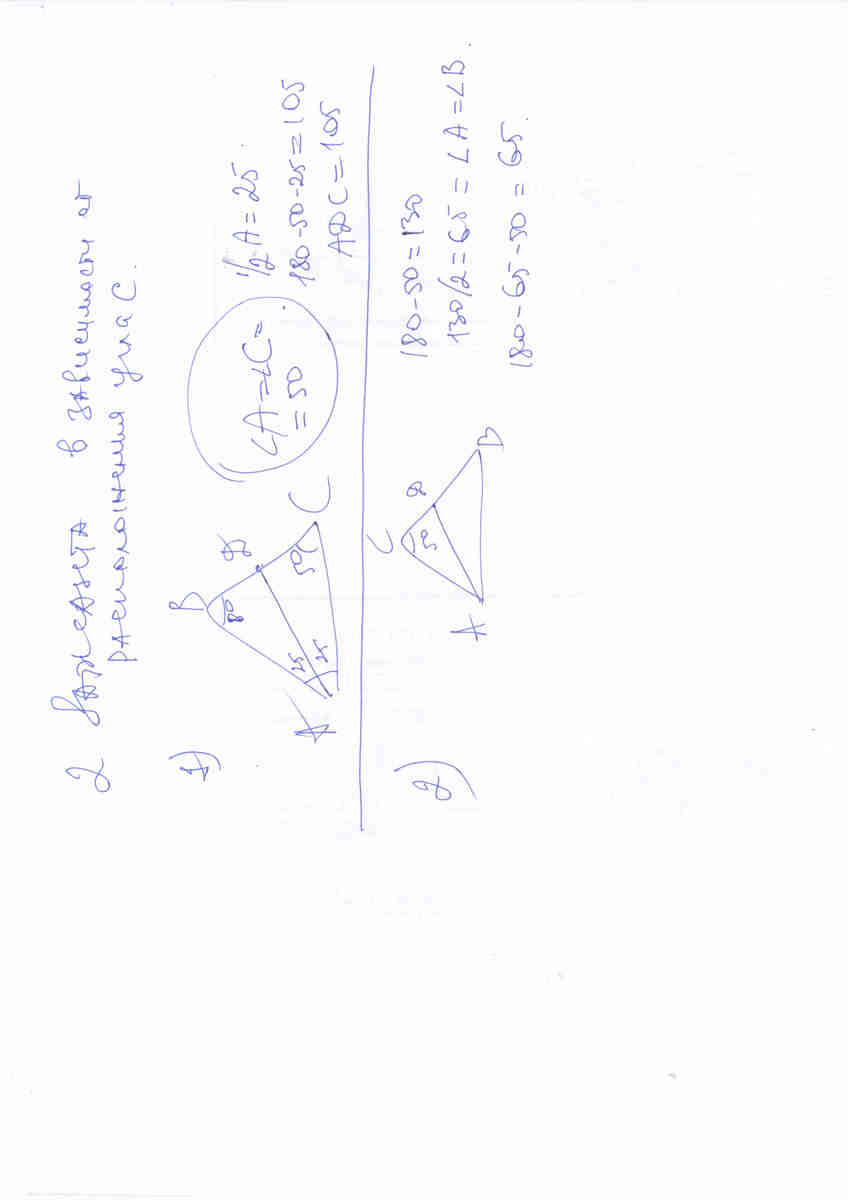 2 Варианта в зависимости от
расположения угла С.
1)
B
80
D
25
25
50
A
C
∠A=∠C=
=50
1/2 A=25.
180-50-25=105
ADC=105
2)
C
50
D
A
B
180-50=130
130/2=65=∠A=∠B.
180-65-50=65.